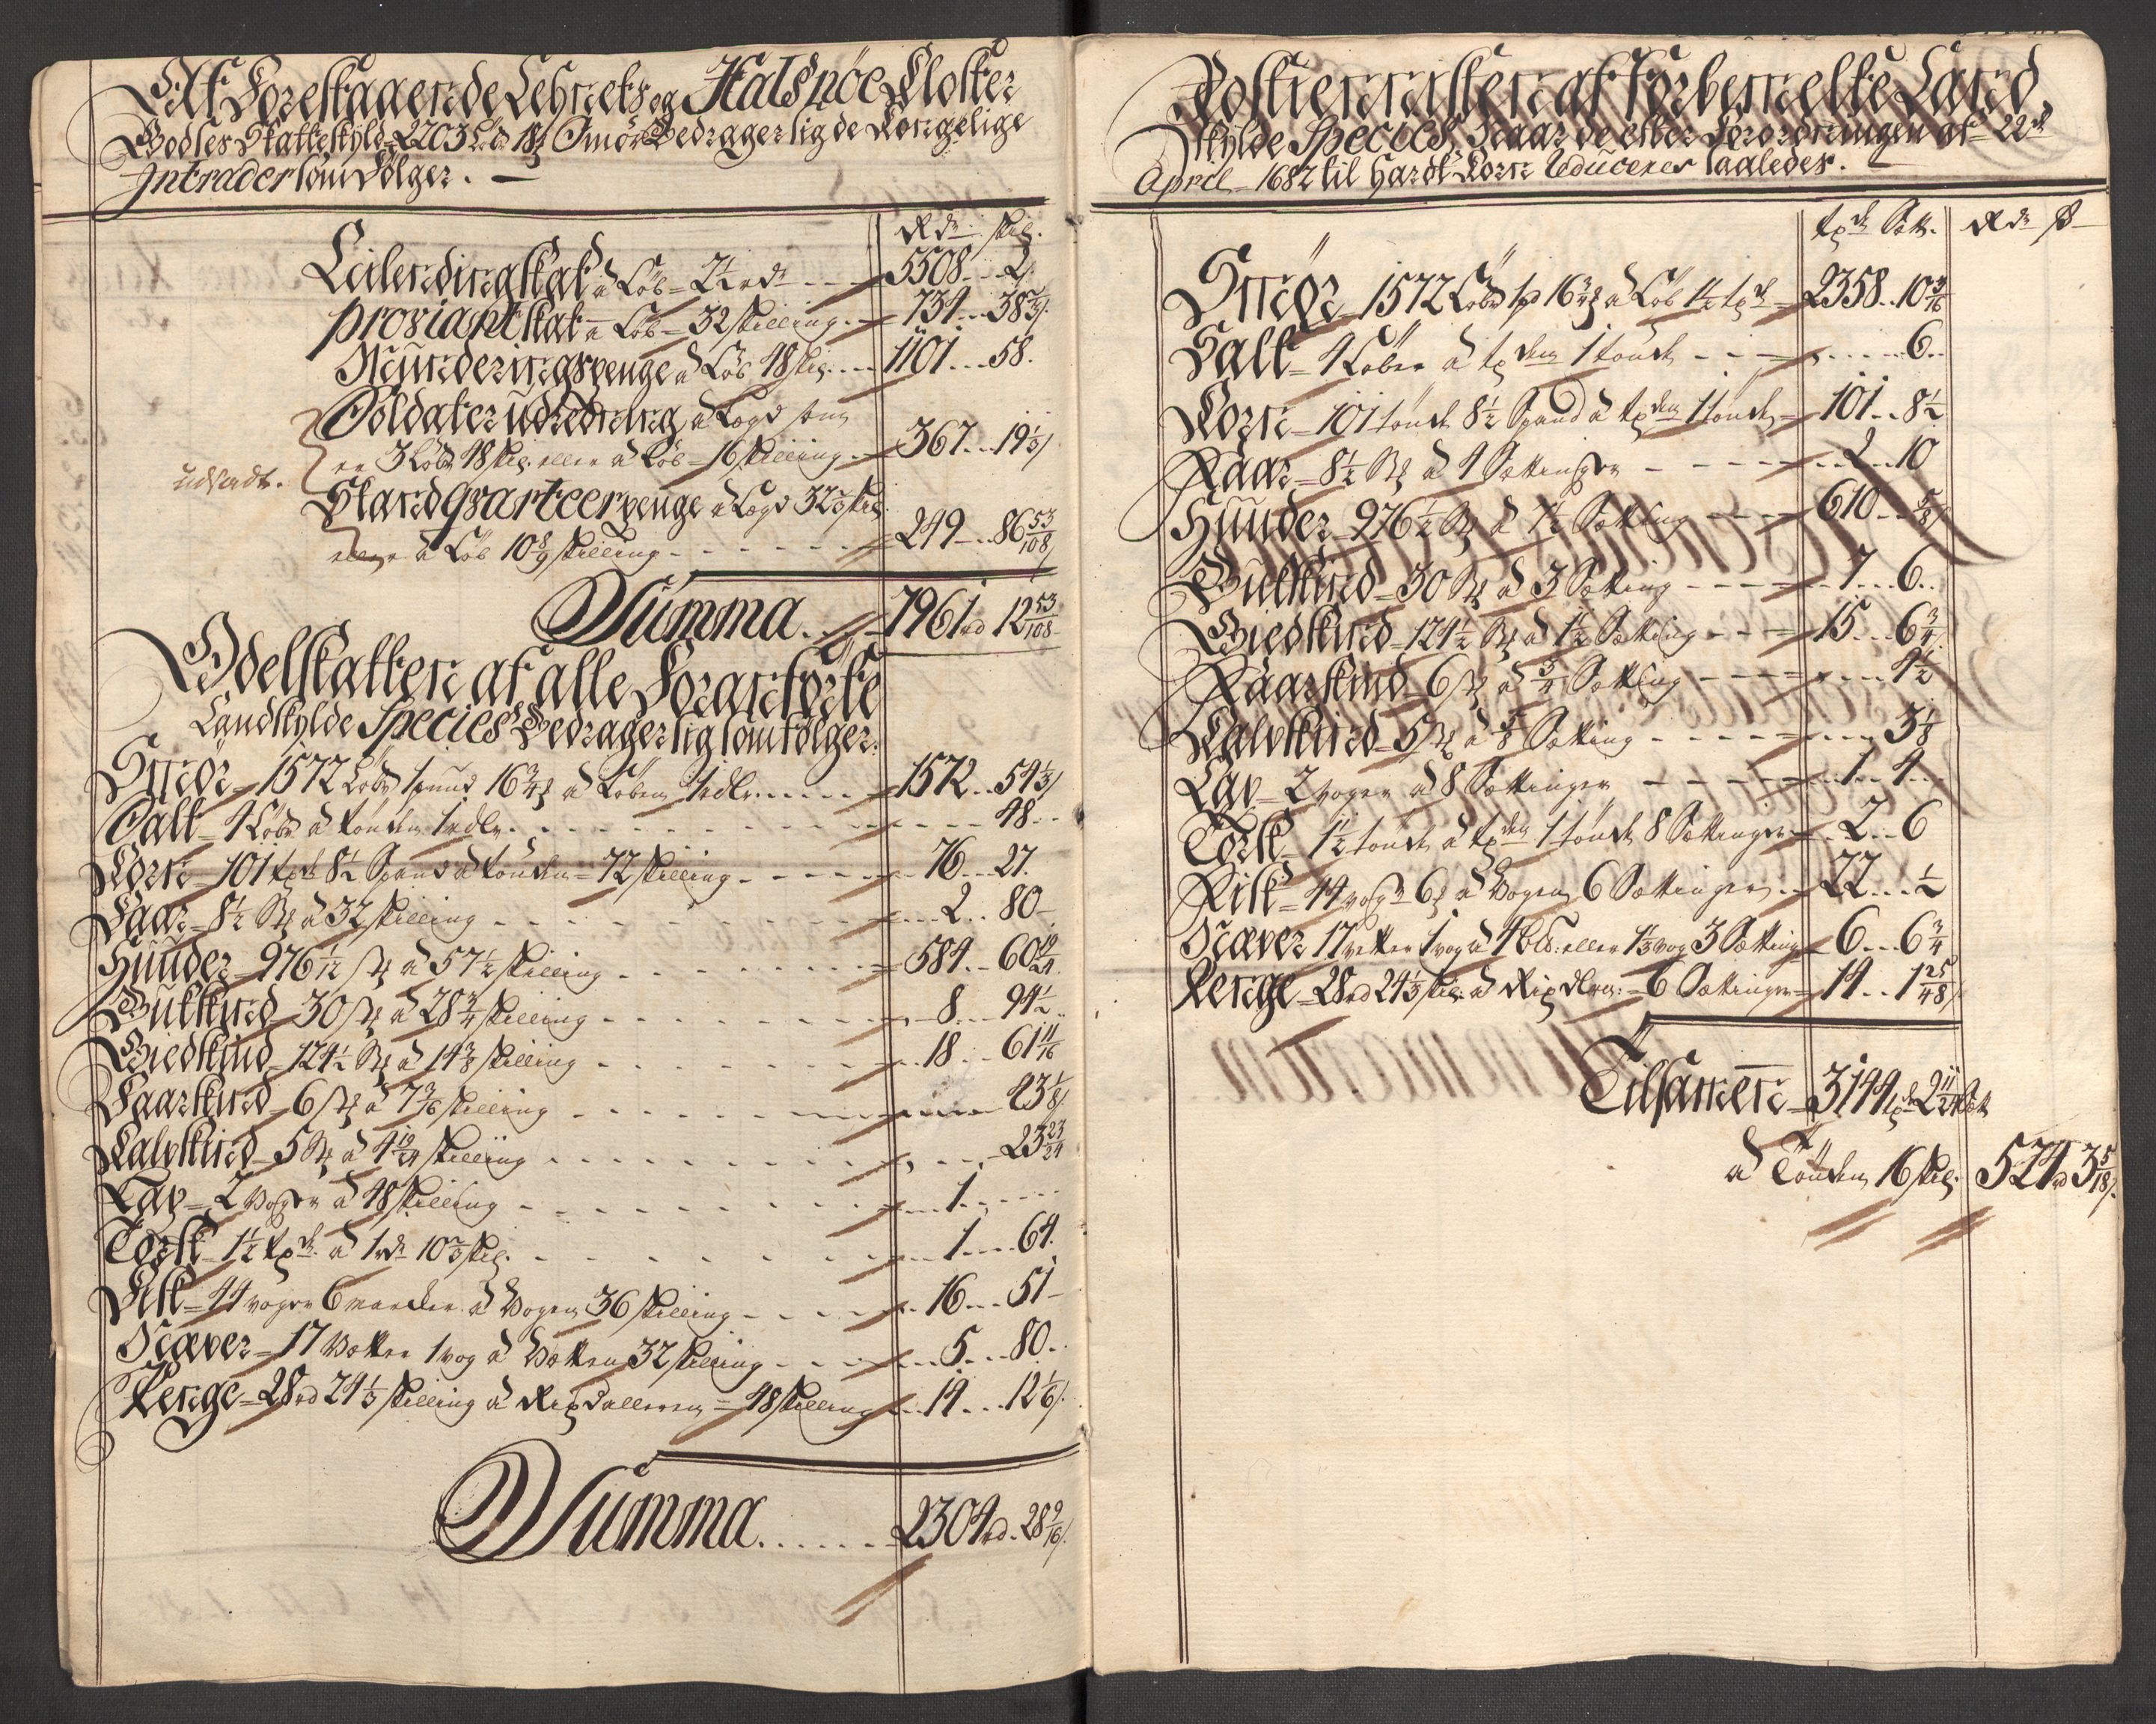 Af Forestaaende Lehnets og Halsnöe Closter
Godses Skatteskyld 2203 Löb 18 ₰ Smör Bedrager sig de Kongelige
Intrader som Fölger. —
Rdr skil.
Leilendingskat â Löb = 2½ rdr 5508 .. 2
proviantskat â Löb = 32 skilling 734 .. 38⅔
Munderingspenge â Löb 48 skil. 1101 .. 58.
Soldater udredning â Legd som
er 3 Löber 48 skil. eller â Löb = 16 skilling 367 .. 19⅓
udsadt.
Standqvarteer penge â Legd 32⅔ skil.
eller â Löb 10 8/9 skilling 249 .. 86 53/108
Summa 7961 rd 12 53/108
Odelskatten af alle Foranförte
Landskylds Species Bedrager sig som fölger.
Smör = 1572 Löber 1 pund 16¾ ₰ â Löben 1 rdlr 1572 .. 54⅓
Salt = 4 Löber â tönden 1 rdlr. 48
Korn = 101 tönd 8½ Spand â tönden = 72 skilling 76 .. 27.
Faar = 8½ Stk â 32 skilling 2 .. 80
Huuder = 976 1/12 Stk â 57½ skilling 584 .. 60 19/24
Bukskind 30 Stk â 28¾ skilling 8 .. 94½
Giedskind = 124½ Stk â 14⅜ skilling 18 .. 61 11/16
Faarskind = 6 Stk â 7 3/16 skilling 43⅛
Kalvskind = 5 Stk â 4 19/24 skilling 23 23/24
Lax = 2 voger â 48 skilling 1
Torsk = 1½ tönd â 1 rdr 10⅔ skil. 1 .. 64.
Fisk = 44 voger 6 marker â Vogen 36 skilling 16 .. 51
Næver = 17 Vetter 1 vog â Vetten 32 skilling 5 .. 80
Penge = 28 rd 24⅓ skilling â Rixdalleren = 48 skilling 14 .. 12⅙
Summa 2304 rd. 28 9/16
Rostienesten af forbemelte Land
skylds Species, naar de efter Forordningen af 22de
April 1682 til Hart Korn Reduceres saaledes.
tönd Sett. Rdr ß
Smör = 1572 Löber 1 pd 16¾ ₰ â Löb 1½ tönd 2358 .. 10 3/16
Salt = 4 Löber â tönden 1 tönde 6
Korn = 101 tönde 8½ Spand â tönden 1 tönde 101 .. 8½
Faar = 8½ Stk â 4 Settinger 2 .. 10
Huuder = 976½ Stk â 7½ Setting 610 .. ⅝
Bukskind = 30 Stk â 3 Setting 7 .. 6
Giedskind = 124½ Stk â 1½ Setting 15 .. 6¾
Faarskind = 6 Stk â ¾ Setting 4½
Kalvskind = 5 Stk â ⅝ Setting 3⅛
Lax = 2 voger â 8 Settinger 1 .. 4
Torsk = 1½ tönde â tönden 1 tönde 8 Settinger 2 .. 6
Fisk = 44 voger 6 ₰ â Vogen 6 Settinger 22 .. ½
Næver 17 vetter 1 vog â 4 Bd: eller 1⅓ vog 3 Setting 6 .. 6¾
Penge = 28 rd 24⅓ skil. â Rixdlren: = 6 Settinger 14 .. 1 25/48
Tilsamen 3144 tönd 2 11/24 Sett
â Tönden 16 skil. 524 rd 3 5/18